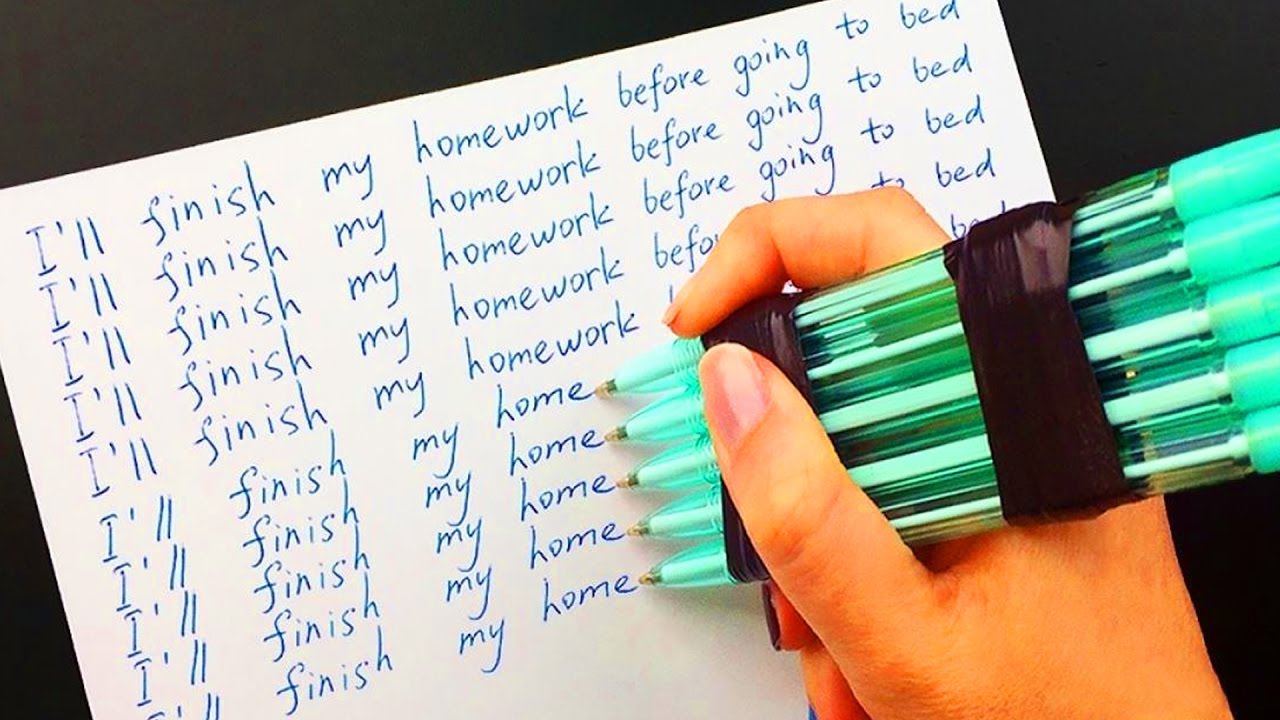 I'll finish my homework before going to bed
I'll finish my homework before going to bed
I'll finish my homework before going to bed
I'll finish my homework befo to bed
I'll finish my homework b bed
I'll finish my home
I'll finish my home
I'll finish my home
I'll finish my home
I'll finish my home